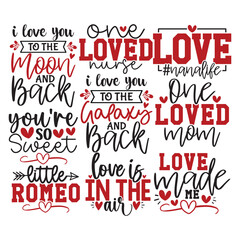 i love you
TO THE
Moon
AND
Back
you're
SO
Sweet
little
ROMEO
one
LOVED
nurse
i love you
TO THE
Galaxy
AND
BACK
love is
IN THE
air
LOVE
#nanalife
one
LOVED
mom
LOVE
made
ME